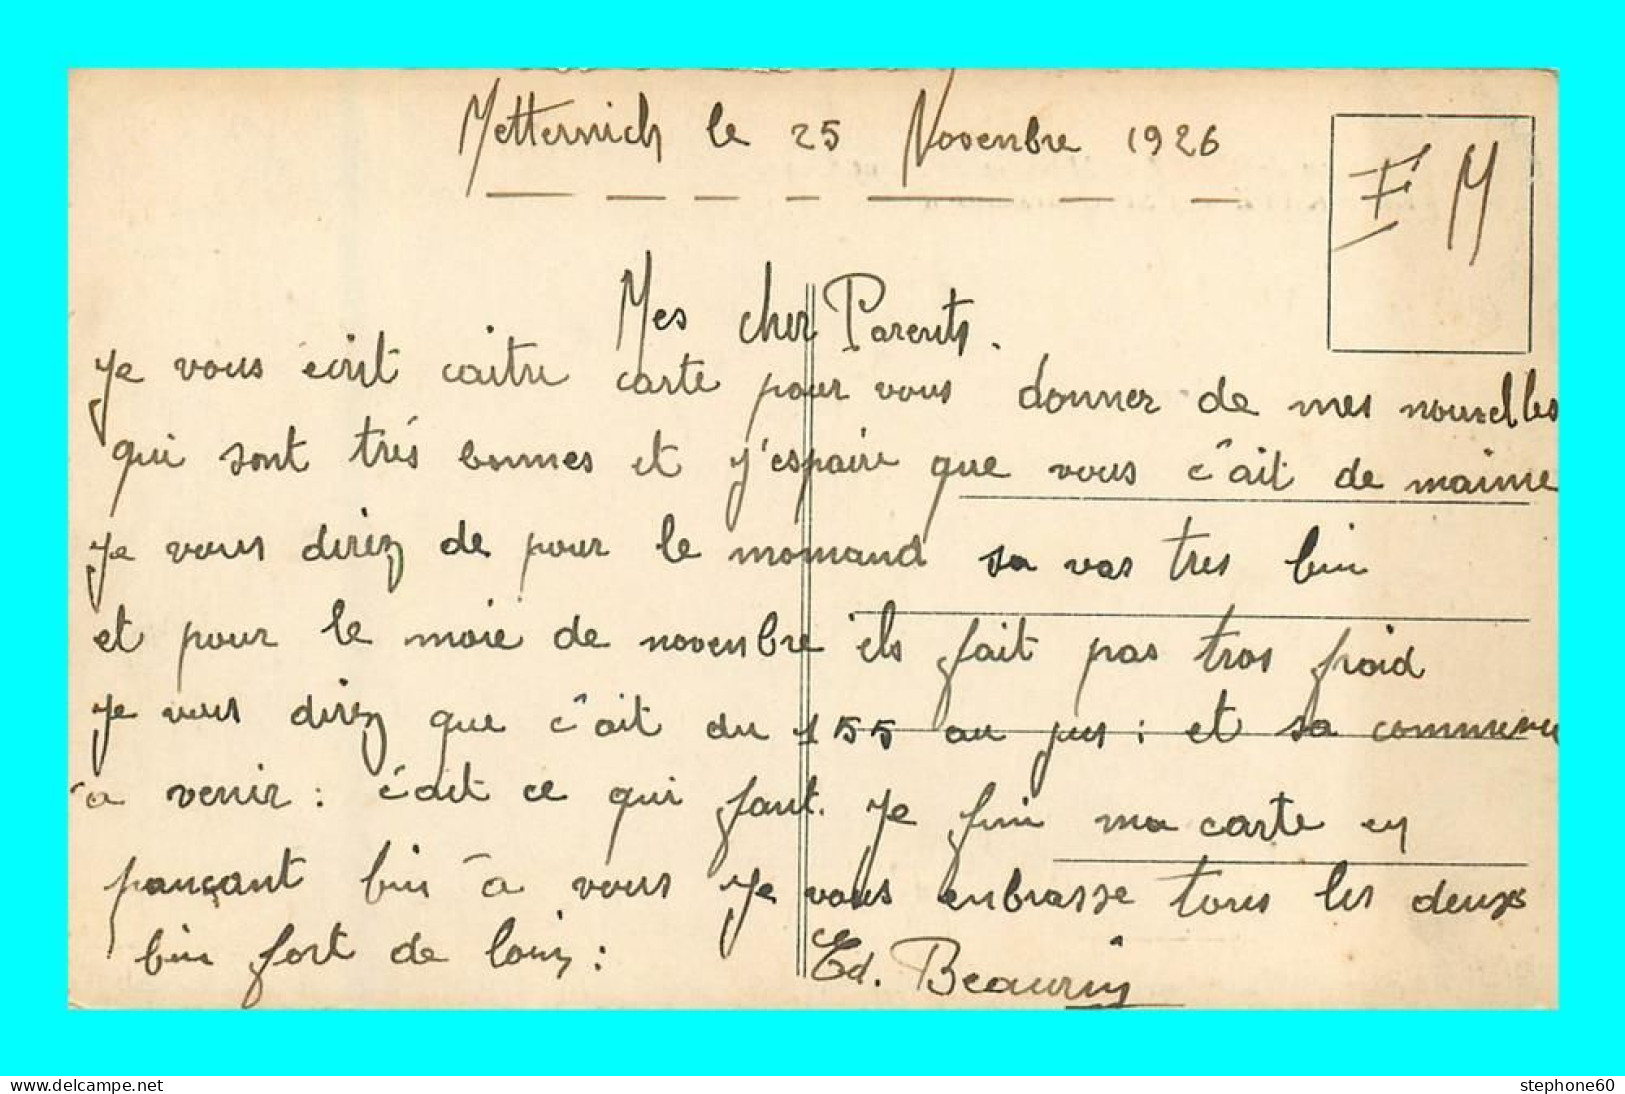 Metternich le 25 Novenbre 1926
F M
Mes cher Parents.
Je vous écrit caitre carte pour vous donner de mes nouvelles
qui sont trés bonnes et j'espaire que vous c'ait de maime
Je vous direz de pour le momand sa vas tres bin
et pour le moie de novenbre ils fait pas tros froid
Je vous direz que c'ait du 155 au jus : et sa commence
à venir : c'ait ce qui faut. Je fini ma carte en
pançant bin à vous Je vous enbrasse tous les deux
bin fort de loin :
Ed. Beaurin
delcampe.net
stephone60